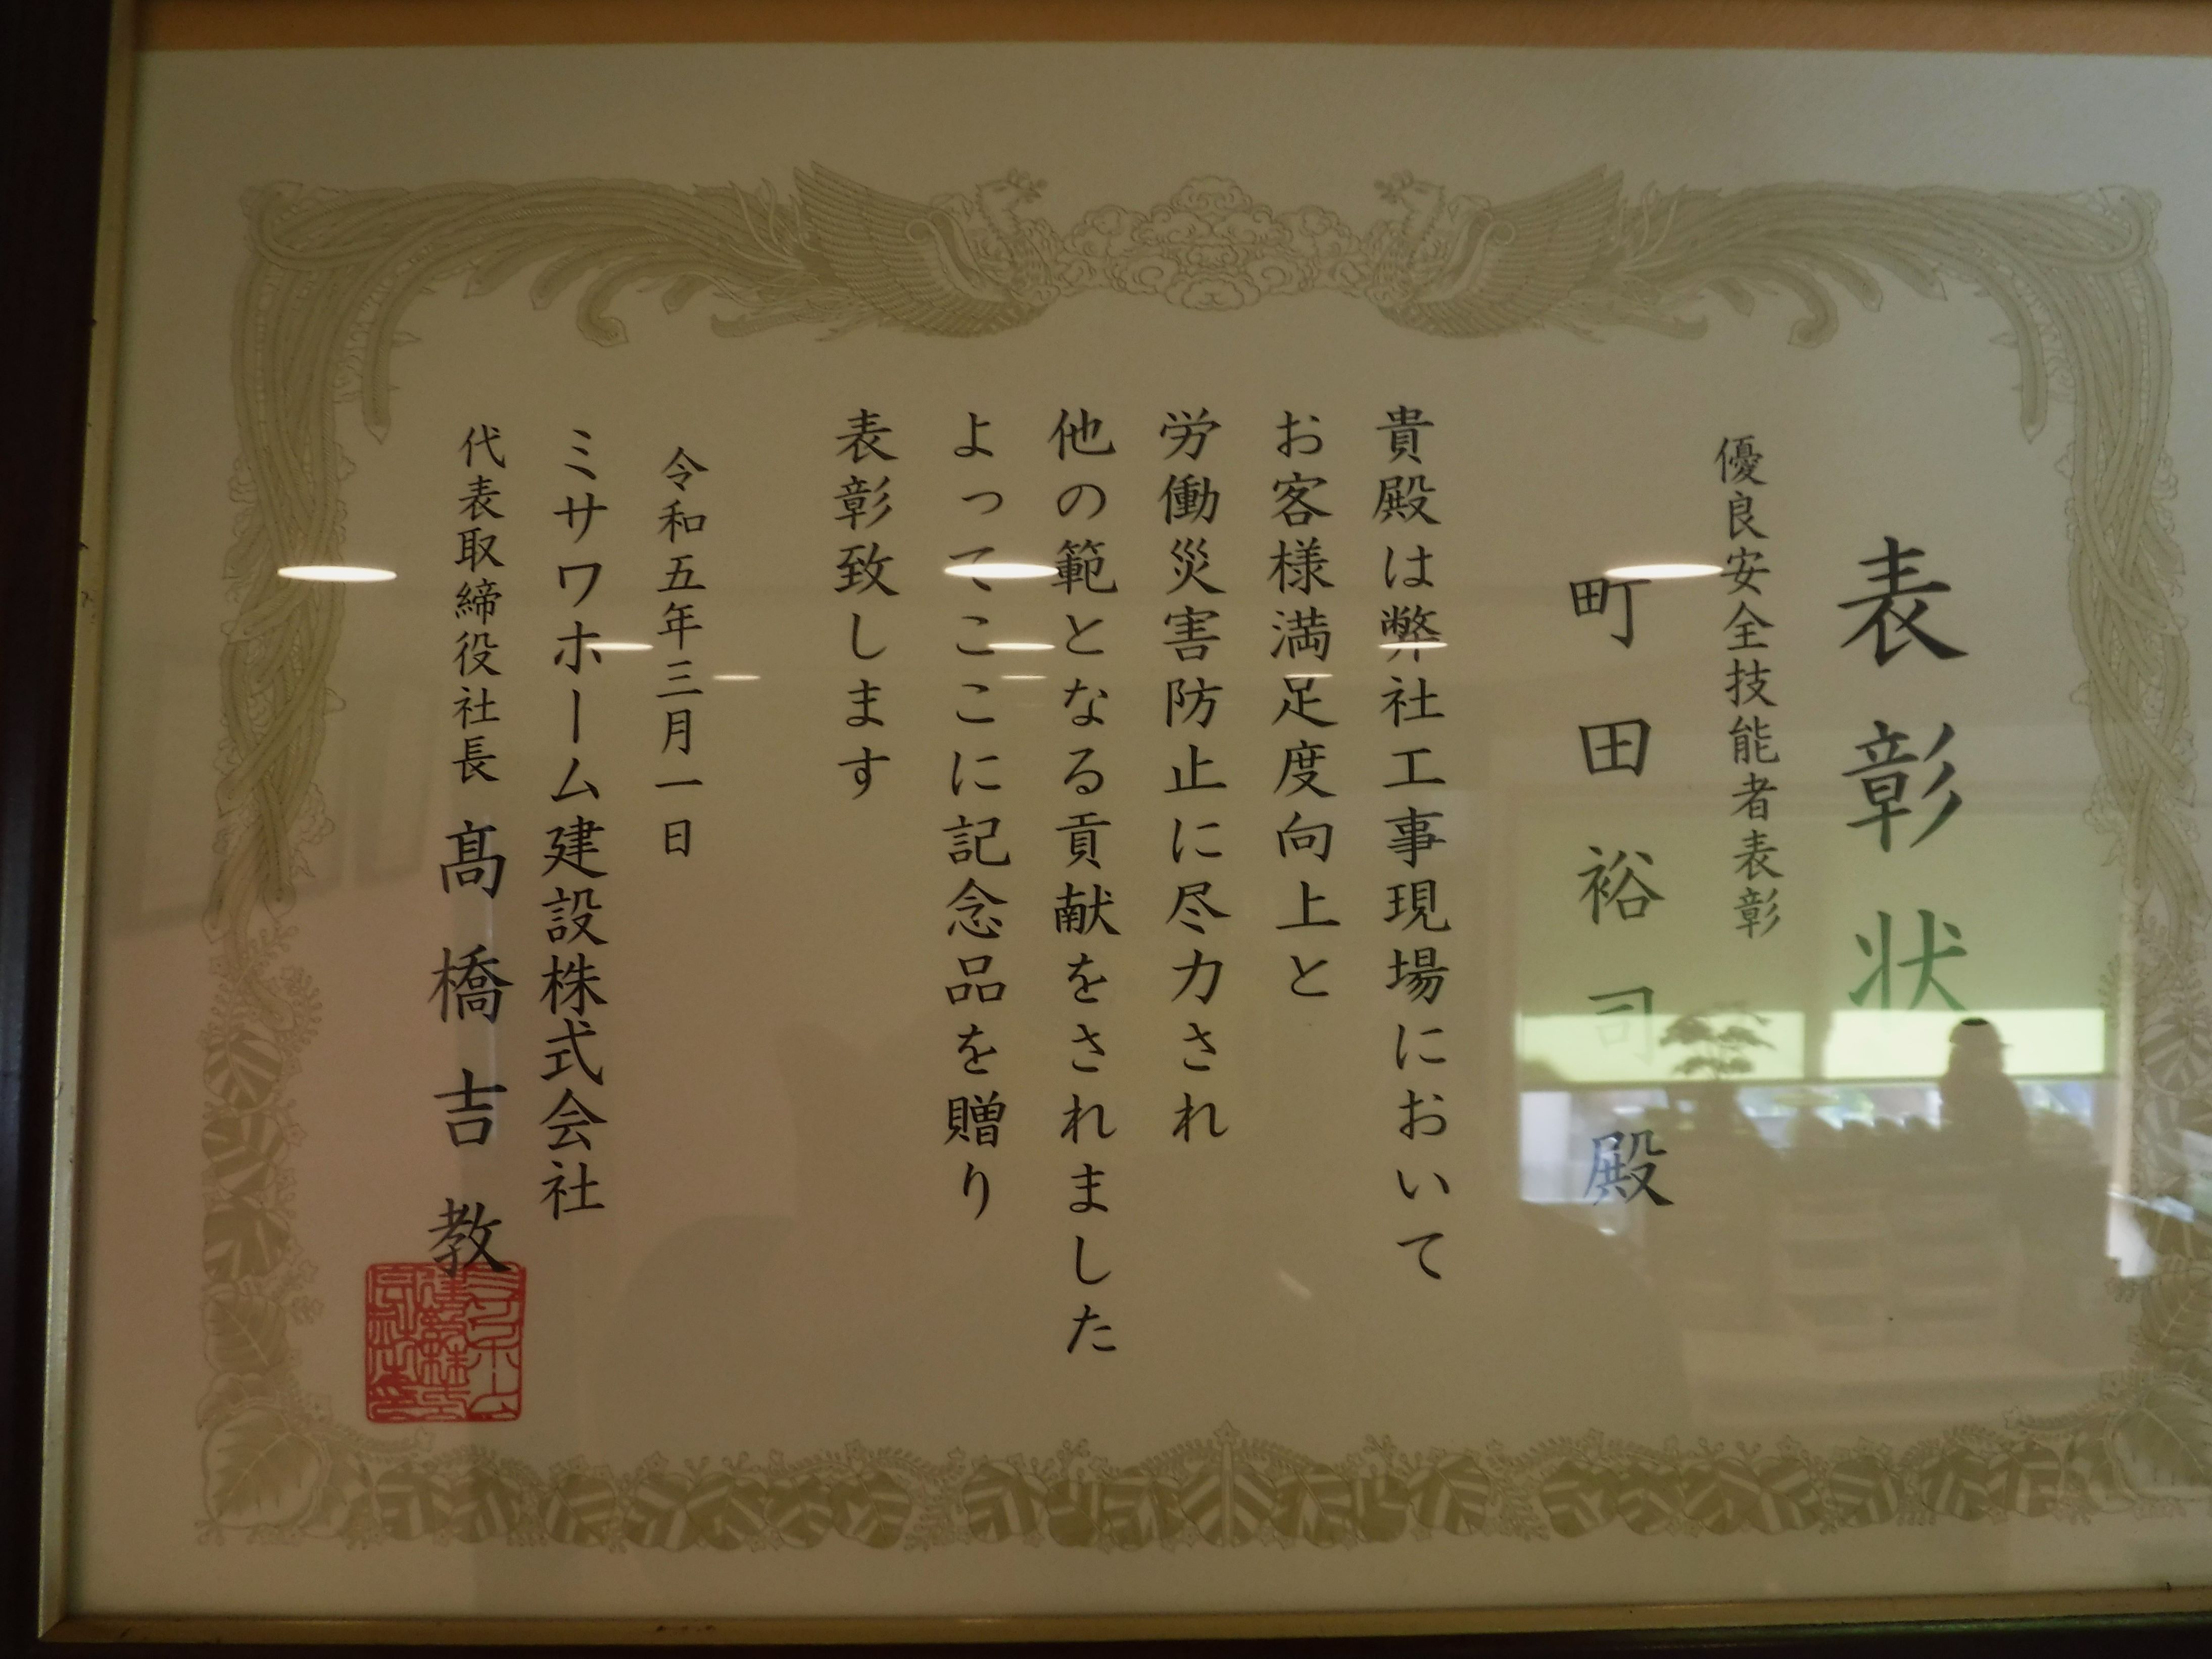 表彰状
優良安全技能者表彰
町田裕司殿
貴殿は弊社工事現場において
お客様満足度向上と
労働災害防止に尽力され
他の範となる貢献をされました
よってここに記念品を贈り
表彰致します
令和五年三月一日
ミサワホーム建設株式会社
代表取締役社長 髙橋吉教